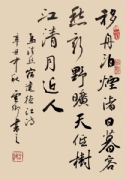 移舟泊煙渚日暮客
愁新野曠天低樹
江清月近人
孟浩然宿建德江詩
辛丑